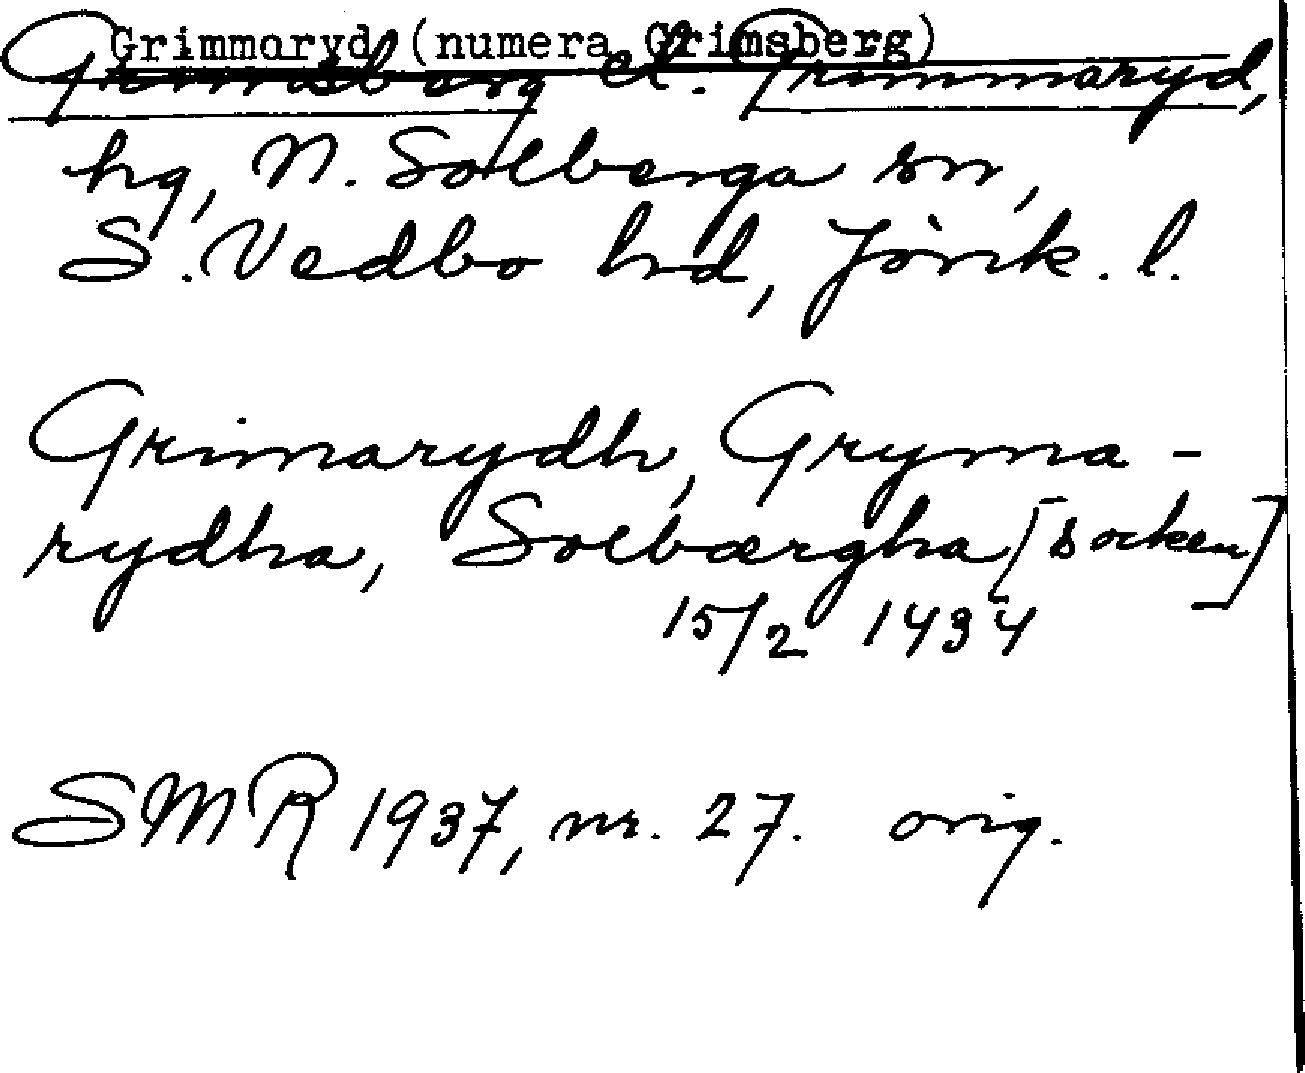 Grimmaryd (numera Grimsberg)
Grimsberg el. Grimmaryd,
hg, N. Solberga sn,
S. Vedbo hd, Jönk. l.
Grimarydh, Gryma-
rydha, Solbærgha [socken]
15/2 1434
SMR 1937, nr. 27. orig.